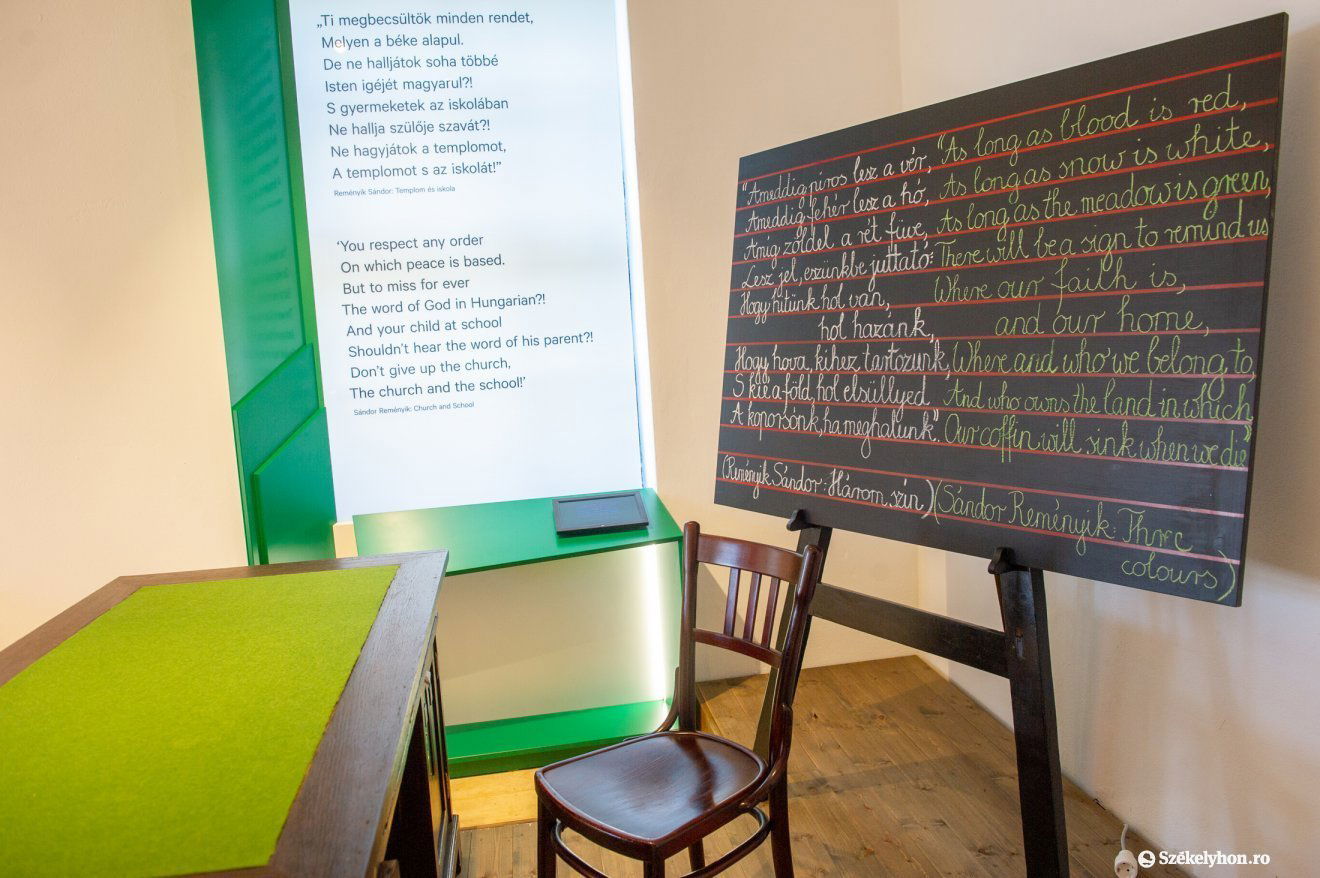 „Ti megbecsültök minden rendet,
Melyen a béke alapul.
De ne halljátok soha többé
Isten igéjét magyarul?!
S gyermeketek az iskolában
Ne hallja szülője szavát?!
Ne hagyjátok a templomot,
A templomot s az iskolát!”
Reményik Sándor: Templom és iskola
‘You respect any order
On which peace is based.
But to miss for ever
The word of God in Hungarian?!
And your child at school
Shouldn’t hear the word of his parent?!
Don’t give up the church,
The church and the school!’
Sándor Reményik: Church and School
“Ameddig piros lesz a vér,
Ameddig fehér lesz a hó,
Amíg zöldel a rét füve,
Lesz jel, eszünkbe juttató:
Hogy hitünk hol van,
hol hazánk,
Hogy hova, kihez tartozunk,
S kié a föld, hol elsüllyed
A koporsónk, ha meghalunk”.
(Reményik Sándor: Három szín)
“As long as blood is red,
As long as snow is white,
As long as the meadow is green,
There will be a sign to remind us
Where our faith is,
and our home,
Where and who we belong to,
And who owns the land in which
Our coffin will sink when we die”
(Sándor Reményik: Three
colours)
Székelyhon.ro